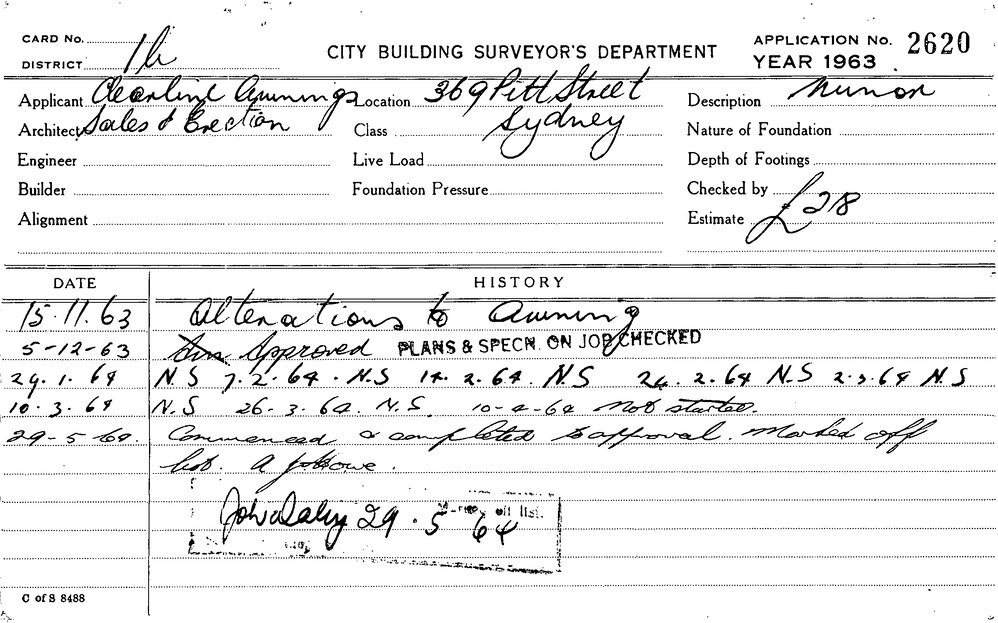 CARD No.
DISTRICT
CITY BUILDING SURVEYOR'S DEPARTMENT
APPLICATION No. 2620
YEAR 1963
Applicant Clearline Awnings
Location 369 Pitt Street
Description Minor
Architect Sales & Erection
Class Sydney
Nature of Foundation
Engineer
Live Load
Depth of Footings
Builder
Foundation Pressure
Checked by
Alignment
Estimate £28
DATE HISTORY
15.11.63 Alterations to Awning
5-12-63 Approved PLANS & SPECN. ON JOB CHECKED
29.1.64 N.S 7.2.64. N.S 14.2.64. N.S 24.2.64 N.S 2.3.64 N.S
10.3.64 N.S 26.3.64. N.S. 10-4-64 Not started.
29-5-64. Commenced & completed to approval. Marked off
list.
29.5 64
off list.
C of S 8488